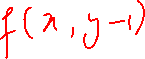 f(x, y-1)